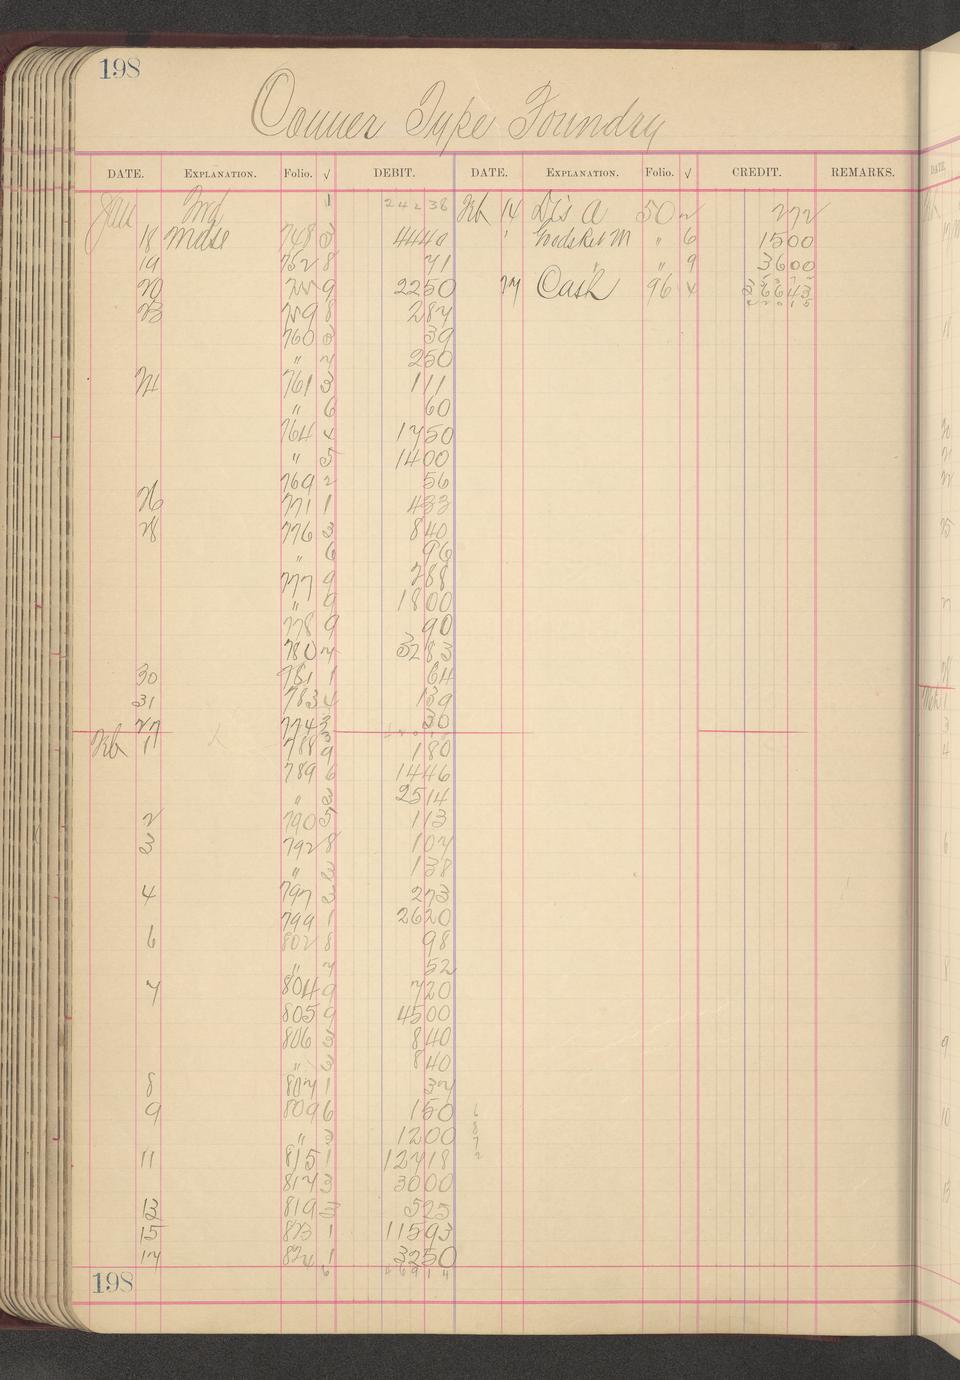 198
Conner Type Foundry
DATE. EXPLANATION. Folio. √ DEBIT. DATE. EXPLANATION. Folio. √ CREDIT. REMARKS.
Jan 1 242 38 Feb 14 Dis a 50 2 2 72
18 Mdse 748 3 44 40 " 6 15 00
19 752 8 71 " " 9 36 00
20 9 22 50 27 Cash 96 4 366 43
23 759 8 2 87
760 3 39
" 7 2 50
24 761 3 1 11
" 6 60
764 4 17 50
" 5 14 00
769 2 56
26 771 1 4 33
28 776 3 8 40
" 6 96
777 9 2 88
" 9 18 00
778 9 90
780 7 32 83
30 781 1 64
31 783 4 1 39
27 774 3 30
Feb 1 788 9 1 80
789 6 14 46
" 25 14
2 790 5 1 13
3 792 8 1 07
" 1 38
4 797 3 2 73
799 1 26 20
6 802 8 98
" 7 52
7 804 9 7 20
805 9 45 00
806 3 8 40
" 3 8 40
8 807 1 37
9 809 6 1 50
" 3 12 00
11 815 1 127 18
817 3 30 00
13 819 3 5 25
15 823 1 115 93
17 824 1 32 50
198